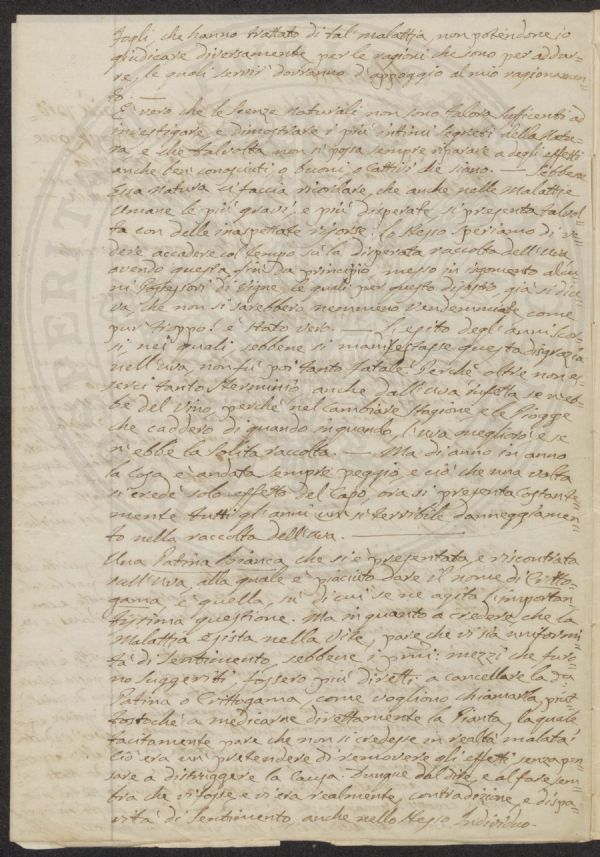 fogli, che hanno trattato di tal malattia non potendone io
giudicare diversamente per le ragioni che sono per addur-
re, le quali servir dovranno d'appoggio al mio ragionamen-
to. —
È vero che le scienze naturali non sono talora sufficenti ad
investigare e dimostrare i più intimi segreti della Natu-
ra e che talvolta non si possa sempre riparare a degli effetti
anche ben conosciuti, o buoni, o cattivi che siano. — Sebbene
essa natura ci faccia ricordare, che anche nelle malattie
umane le più gravi, e più disperate, si presenta talvol-
ta con delle inaspettate risorse: lo stesso speriamo di ve-
dere accadere col tempo sù la disperata raccolta dell'uva
avendo questa sin da principio messo in sgomento alcu-
ni Possessori di Vigne, le quali per questo disastro già si dice-
va, che non si sarebbero nemmeno Vendemmiate, come
pur troppo! è stato vero. — L'esito degli anni scor-
si, nei quali, sebbene si manifestasse questa disgrazia
nell'uva, non fù poi tanto fatale. Perchè oltre non es-
serci tanto sterminio, anche dall'uva infetta se n'eb-
be del vino, perchè nel cambiare stagione, e le Piogge
che caddero di quando in quando, l'uva megliorò e se
n'ebbe la solita raccolta. — Ma di anno in anno
la cosa è andata sempre peggio, e ciò che una volta
si crede solo effetto del Capo, ora si presenta costante-
mente tutti gli anni un sì terribile danneggiamen-
to nella raccolta dell'uva. —
Una Patina Bianca, che si è presentata, e riscontrata
sull'uva, alla quale è piaciuto dare il nome di Critto-
gama, è quella, su di cui se ne agita l'importan-
tissima questione. Ma in quanto a credere che la
Malattia esista nella Vite, pare che vi sia uniformi-
tà di sentimento, sebbene i primi mezzi che furo-
no suggeriti, fossero più diretti a cancellare la
Patina o Crittogama, come vogliono chiamarla, piut-
tostochè a medicarne direttamente la Pianta, la quale
tacitamente pare che non si credesse in realtà malata!
Ciò era un pretendere di rimovere gli effetti senza pen-
sare a distruggere la causa. Dunque dal dire, e al fare sem-
bra che vi fosse e vi era realmente, contradizione, e dispa-
rità di sentimento, anche nello stesso Individuo.